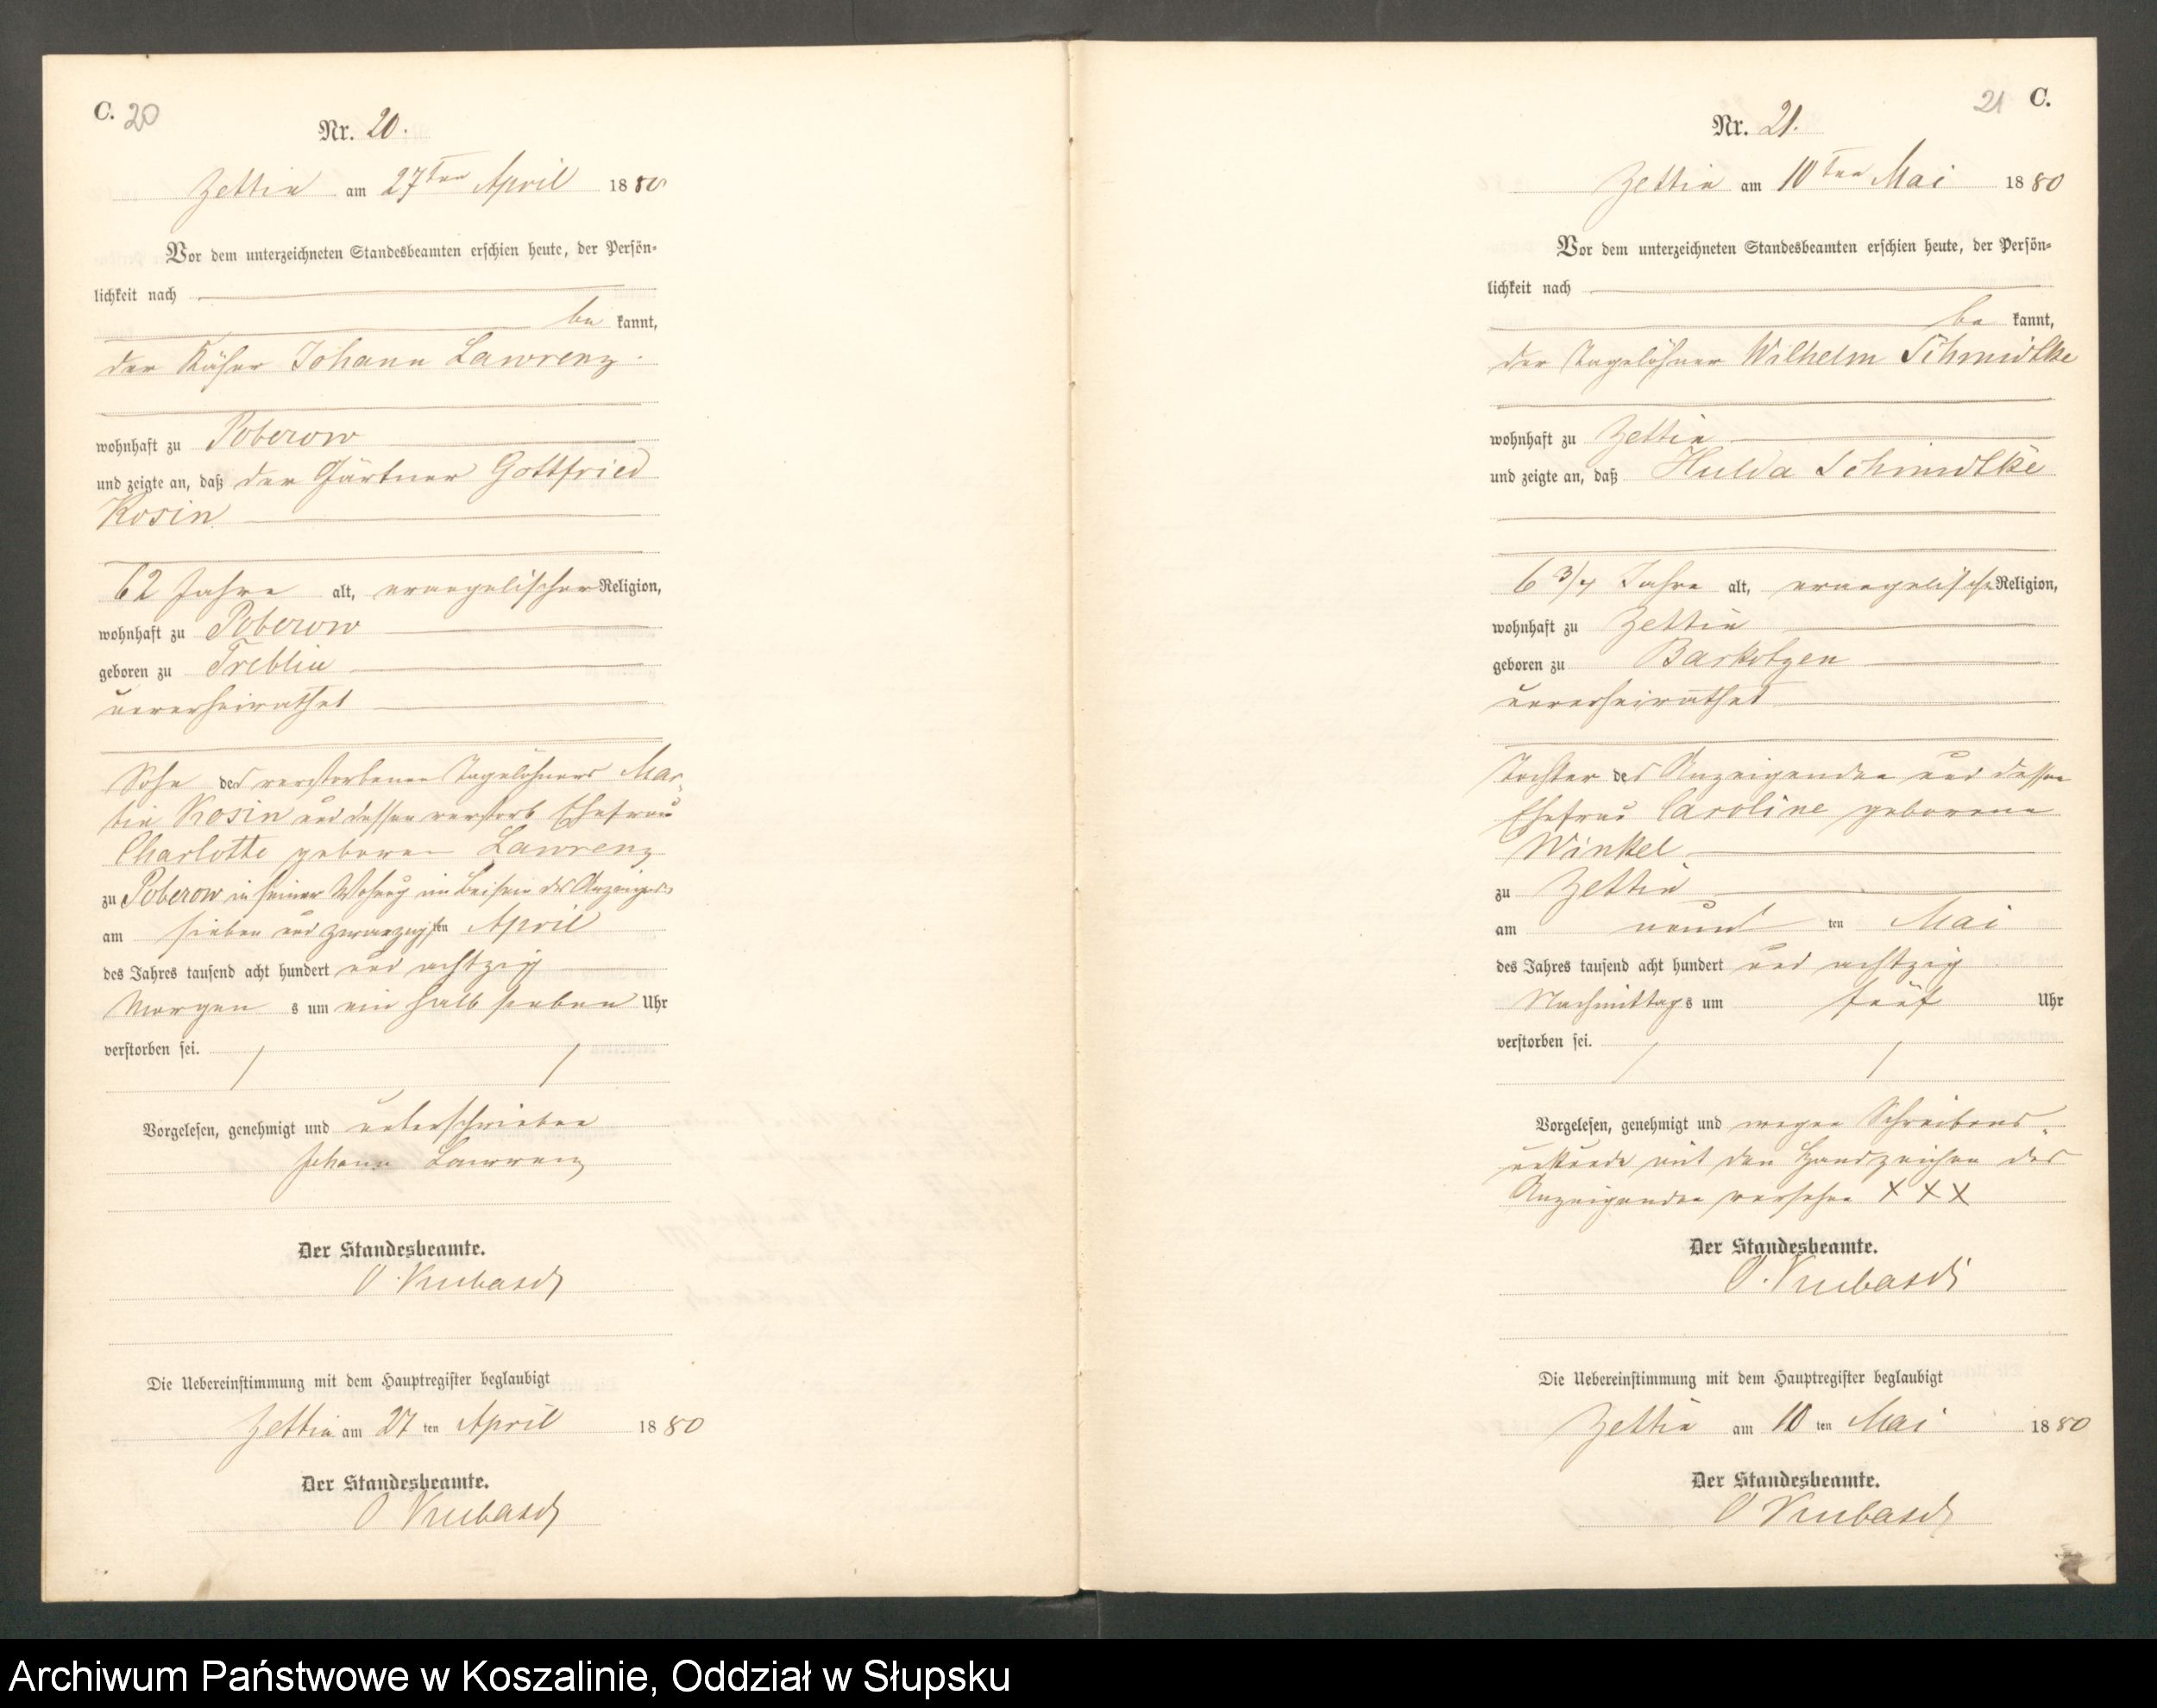 C. 20
Nr. 20.
Zettin am 27ten April 1880
Vor dem unterzeichneten Standesbeamten erschien heute, der Persön-
lichkeit nach
be kannt,
der Käser Johann Lawrenz.
wohnhaft zu Poberow
und zeigte an, daß der Gärtner Gottfried
Kosin
62 Jahre alt, evangelischer Religion,
wohnhaft zu Poberow
geboren zu Treblin
unverheirathet
Sohn des verstorbenen Tagelöhners Mar-
tin Kosin und dessen verstorb Ehefrau
Charlotte geboren Lawrenz
zu Poberow in seiner Wohnung im Beisein des Anzeigers
am sieben und zwanzigsten April
des Jahres tausend acht hundert und achtzig
Morgen s um ein halb sieben Uhr
verstorben sei.
Vorgelesen, genehmigt und unterschrieben
Johann Lawrenz
Der Standesbeamte.
O. Kubasch
Die Uebereinstimmung mit dem Hauptregister beglaubigt
Zettin am 27 ten April 1880
Der Standesbeamte.
O Kubasch
21 C.
Nr. 21.
Zettin am 10ten Mai 1880
Vor dem unterzeichneten Standesbeamten erschien heute, der Persön-
lichkeit nach
be kannt,
der Tagelöhner Wilhelm Schmidtke
wohnhaft zu Zettin
und zeigte an, daß Hulda Schmidtke
6 3/4 Jahre alt, evangelische Religion,
wohnhaft zu Zettin
geboren zu Barkotzen
unverheirathet
Tochter des Anzeigenden und dessen
Ehefrau Caroline geborene
Winkel
zu Zettin
am neun ten Mai
des Jahres tausend acht hundert und achtzig
Nachmittags um fünf Uhr
verstorben sei.
Vorgelesen, genehmigt und wegen Schreibens-
unkunde mit den Handzeichen des
Anzeigenden versehen XXX
Der Standesbeamte.
O. Kubasch
Die Uebereinstimmung mit dem Hauptregister beglaubigt
Zettin am 10 ten Mai 1880
Der Standesbeamte.
O Kubasch
Archiwum Państwowe w Koszalinie, Oddział w Słupsku